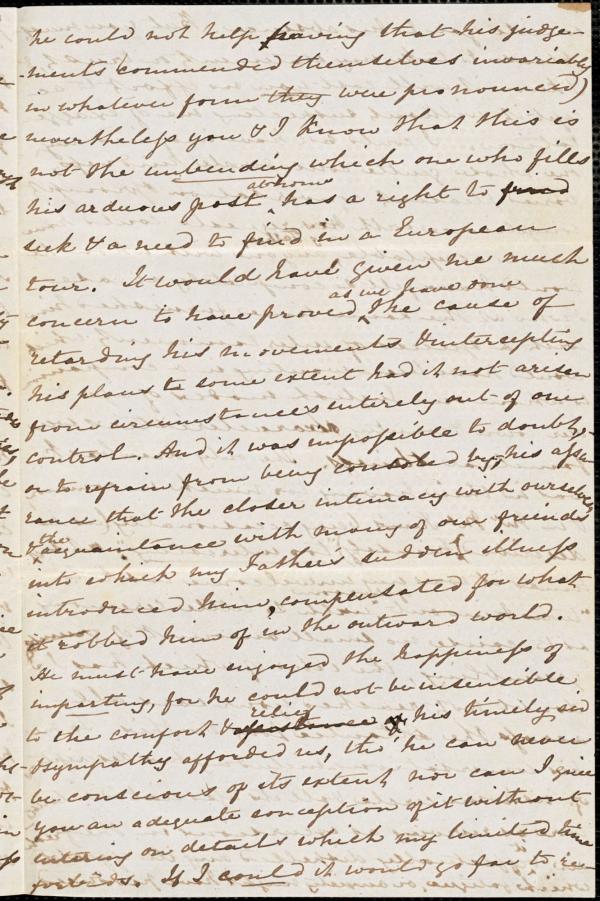 he could not help having that his judge-
ments commended themselves invariably
in whatever form they were pronounced)
nevertheless you & I know that this is
not the unbending which one who fills
his arduous post at home has a right to find
seek & a need to find in a European
tour. It would have given me much
concern to have proved as we have done the cause of
retarding his movements & intercepting
his plans to some extent had it not arisen
from circumstances entirely out of our
control. And it was impossible to doubt,
or to refrain from being consoled by, his assu-
rance that the closer intimacy with ourselves
& the acquaintance with many of our friends
into which my Father's sudden illness
introduced him, compensated for what
it robbed him of in the outward world.
He must have enjoyed the happiness of
imparting, for he could not be insensible
to the comfort & relief his timely aid
& sympathy afforded us, tho' he can never
be conscious of its extent nor can I give
you an adequate conception of it without
entering on details which my limited time
forbids. If I could it would go far to re-